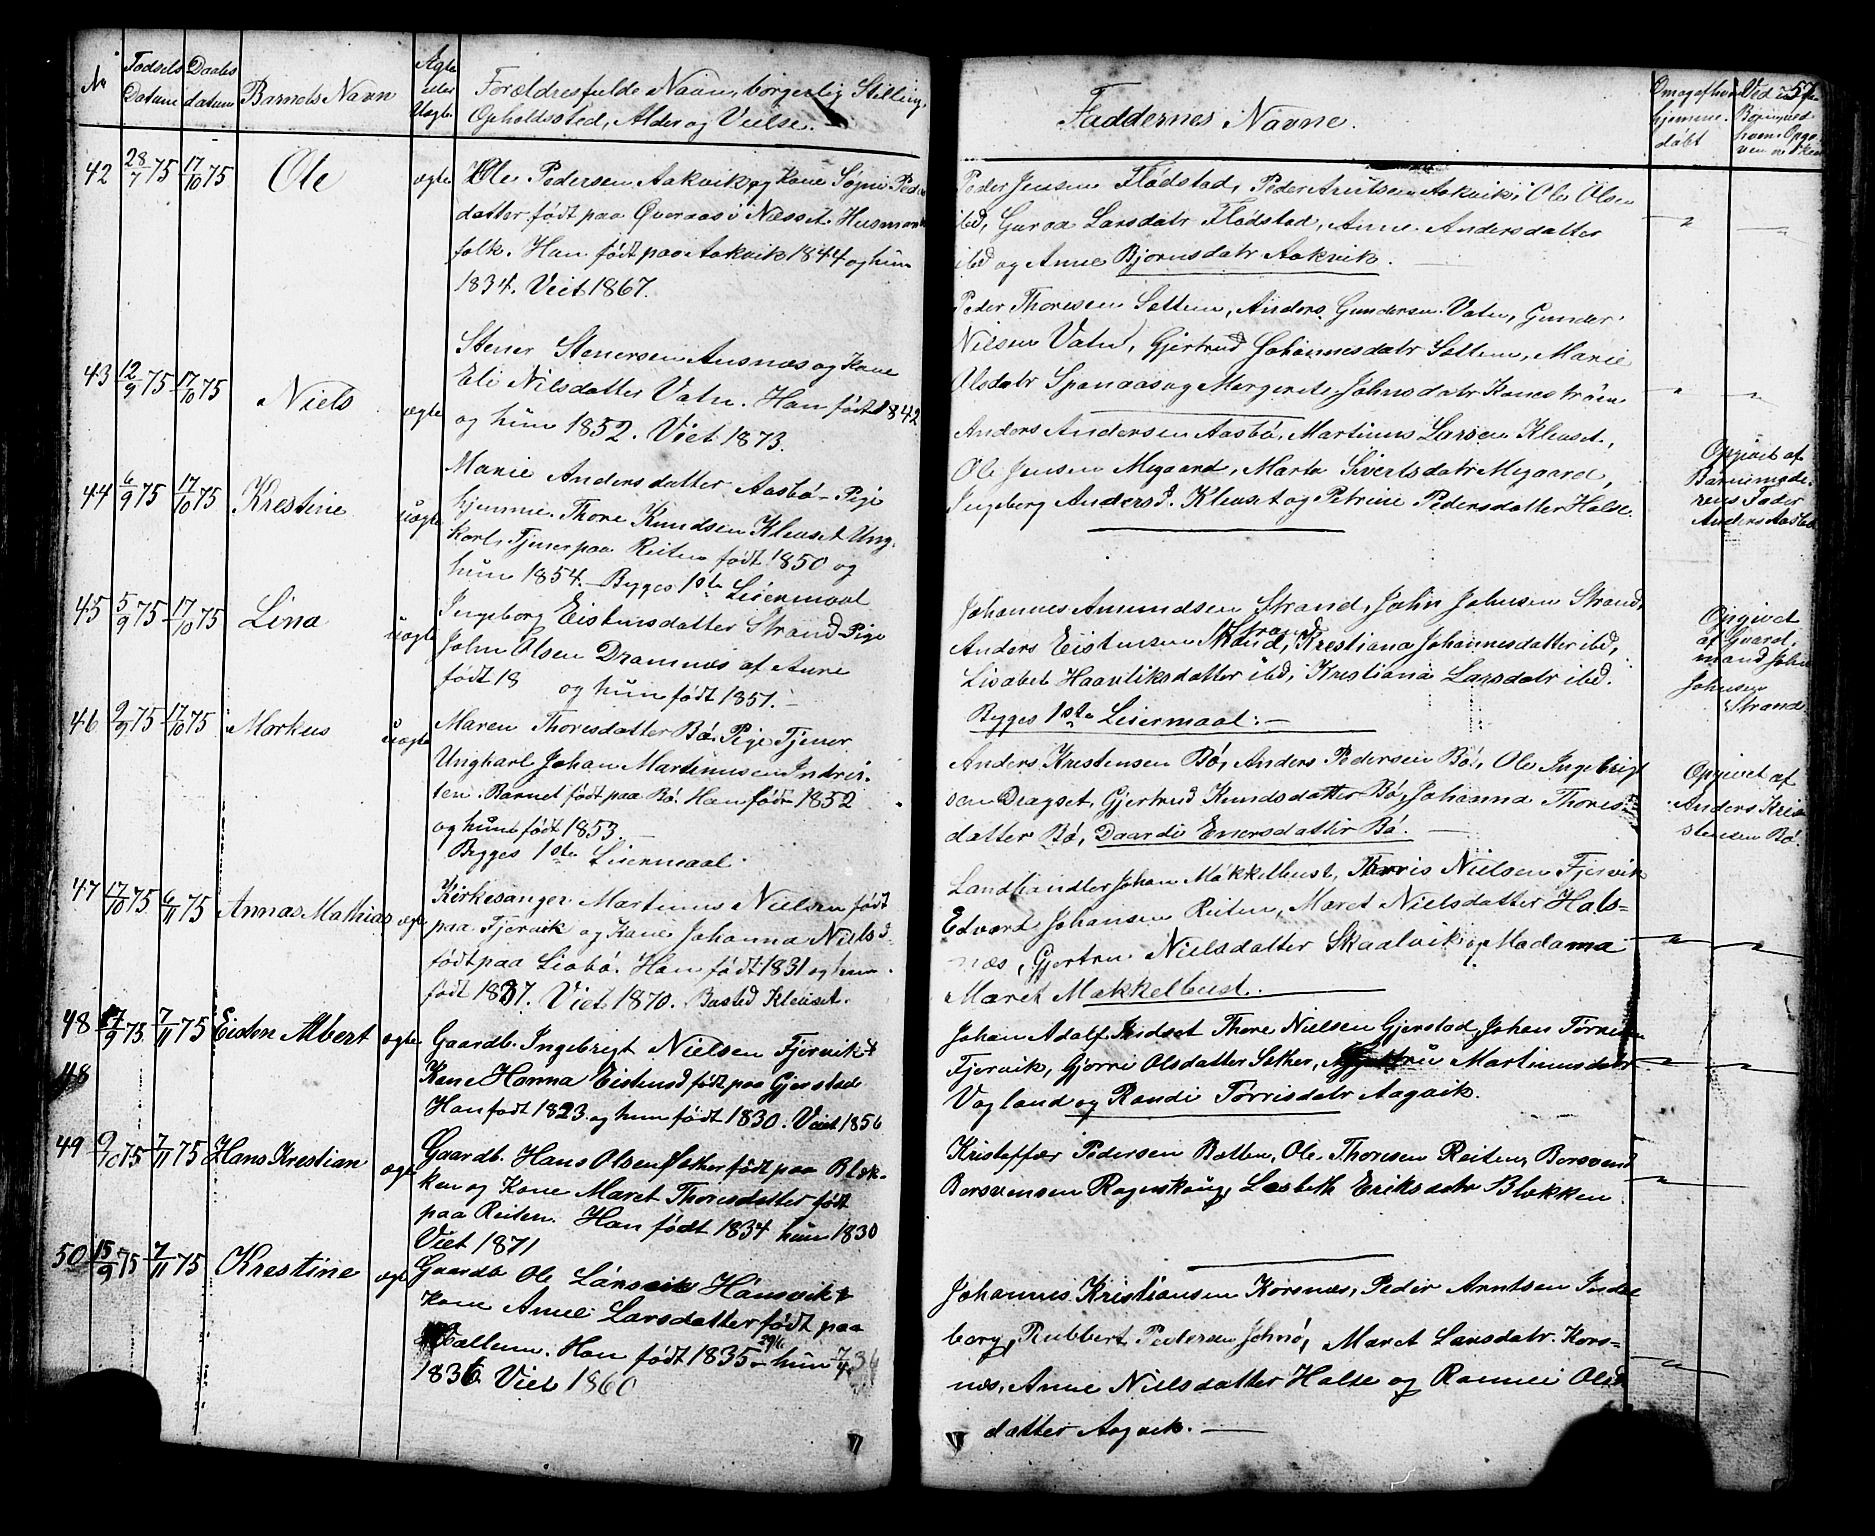 No
Fødsels
Datum
Daabs
datum
Barnets Navn
Ægte
eller
Uægte
Forældres fulde Navn, borgerlig Stilling,
Opholdssted, Alder og Vielse.
42 28/7 75 17/10 75 Ole ægte
Ole Pedersen Aakvik og Kone Pede
datter født paa Gveraas i Næsset. Husmands
folk. Han født paa Aakvik 1844 og hun
1834. Viet 1867.
43 12/9 75 17/10 75 Niels ægte
Stener Stenersen Ausnæs og Kone
Eli Nilsdatter Vatn. Han født 1842
og hun 1852. Viet 1873.
44 6/9 75 17/10 75 Krestine uægte
Marie Andersdatter Aasbø Pige
hjemme. Thore Knudsen Kleuset Ung-
karl, Tjener paa Reiten født 1850 og
hun 1854. Bygges 1ste Leiermaal
45 5/9 75 17/10 75 Lina uægte
Ingeborg Eistensdatter Strand Pige
John Olsen Dramnæs af Aure
født 18 og hun født 1851.
46 9/9 75 17/10 75 Markus uægte
Maren Thoresdatter Bø. Pige Tjener
Ungkarl Johan Martinusen Indrei-
ten. Barnet født paa Bø. Han født 1852
og hun født 1853.
Bygges 1ste Leiermaal.
47 17/10 75 6/11 75 Annas Mathias ægte
Kirkesanger Martinus Nielsen født
paa Fjervik og Kone Johanna Nielsd
født paa Liabø. Han født 1831 og hun
født 1837. Viet 1870. Bosted Kleuset.
48 17/9 75 7/11 75 Eisten Albert ægte
48
Gaardb. Ingebrigt Nielsen Fjervik &
Kone Hanna Eistensd født paa Gjerstad
Han født 1823 og hun født 1830. Viet 1856
49 9/10 75 7/11 75 Hans Krestian ægte
Gaardb. Hans Olsen født paa Blek-
ken og Kone Maret Thoresdatter født
paa Reiten. Han født 1834 hun 1830
Viet 1871
50 15/9 75 7/11 75 Krestine ægte
Gaardb Ole Larsen Hansvik &
Kone Anne Larsdatter født paa
Tallem. Han født 1835 29/6 hun
1836 Viet 1860
Faddernes Navne.
57
hjemme-
døbt
Peder Jensen Flødstad, Peder Arntsen Aakvik, Ole Olsen
ibd, Guroa Larsdatr Flødstad, Anne Andersdatter
ibd og Anne Bjørnsdatr Aakvik.
Peder Thoresen Settem, Anders Gundersen Vatn, Gunder
Nielsen Vatn, Gjertrud Johannesdatr Settem, Marie
Olsdatr Spanaas og Margrete Johnsdatr Kanestrøm.
Anders Andersen Aasbø, Martinus Larsen Kleuset,
Ole Jensen Megaard, Marta Sivertsdatr Megaard,
Ingeborg Andersd. Kleuset og Petrine Pedersdatter Halse.
Opgivet af
Barnemode-
rens Fader
Anders Aasbø
Johannes Amundsen Strand, John Johnsen Strand,
Anders Eistensen Strand, Krestiana Johannesdatter ibd,
Lisabet Haantiksdatter ibd, Kristiana Larsdatr ibd.
Bygges 1ste Leiermaal:
Opgivet
af Gaard-
mand John
Johnsen
Strand.
Anders Krestensen Bø, Anders Pedersen Bø, Ole Ingebrigt
sen Dragset, Gjertrud Knudsdatter Bø, Johanna Thores-
datter Bø, Daardi Enersdatter Bø.
Opgivet af
Anders Kri
stensen Bø.
Landhandler Johan Møkkelbust, Torris Nielsen Fjervik
Edvard Johansen Reiten, Maret Nielsdatter Hals-
næs, Gjertru Nielsdatter Skaalvik og Madama
Maret Møkkelbust.
Johan Adolf Indset Thore Nielsen Gjerstad, Johan Tørris
Fjervik, Gjørri Olsdatter Sether, Gjertru Martinusdatr
Vagland og Randi Tørrisdatr Aagvik.
Kristoffer Pedersen Botten, Ole Thoresen Reiten, Borsvend
Borsvensen Rogenskaug, Lesbeth Eriksdatr Blekken
Johannes Kristiansen Korsnæs, Peder Arntsen Inde
borg, Rubbert Pedersen Jehnø, Maret Larsdatr. Kors-
næs, Anne Nielsdatter Halse og Olsd
datter Aagvik.